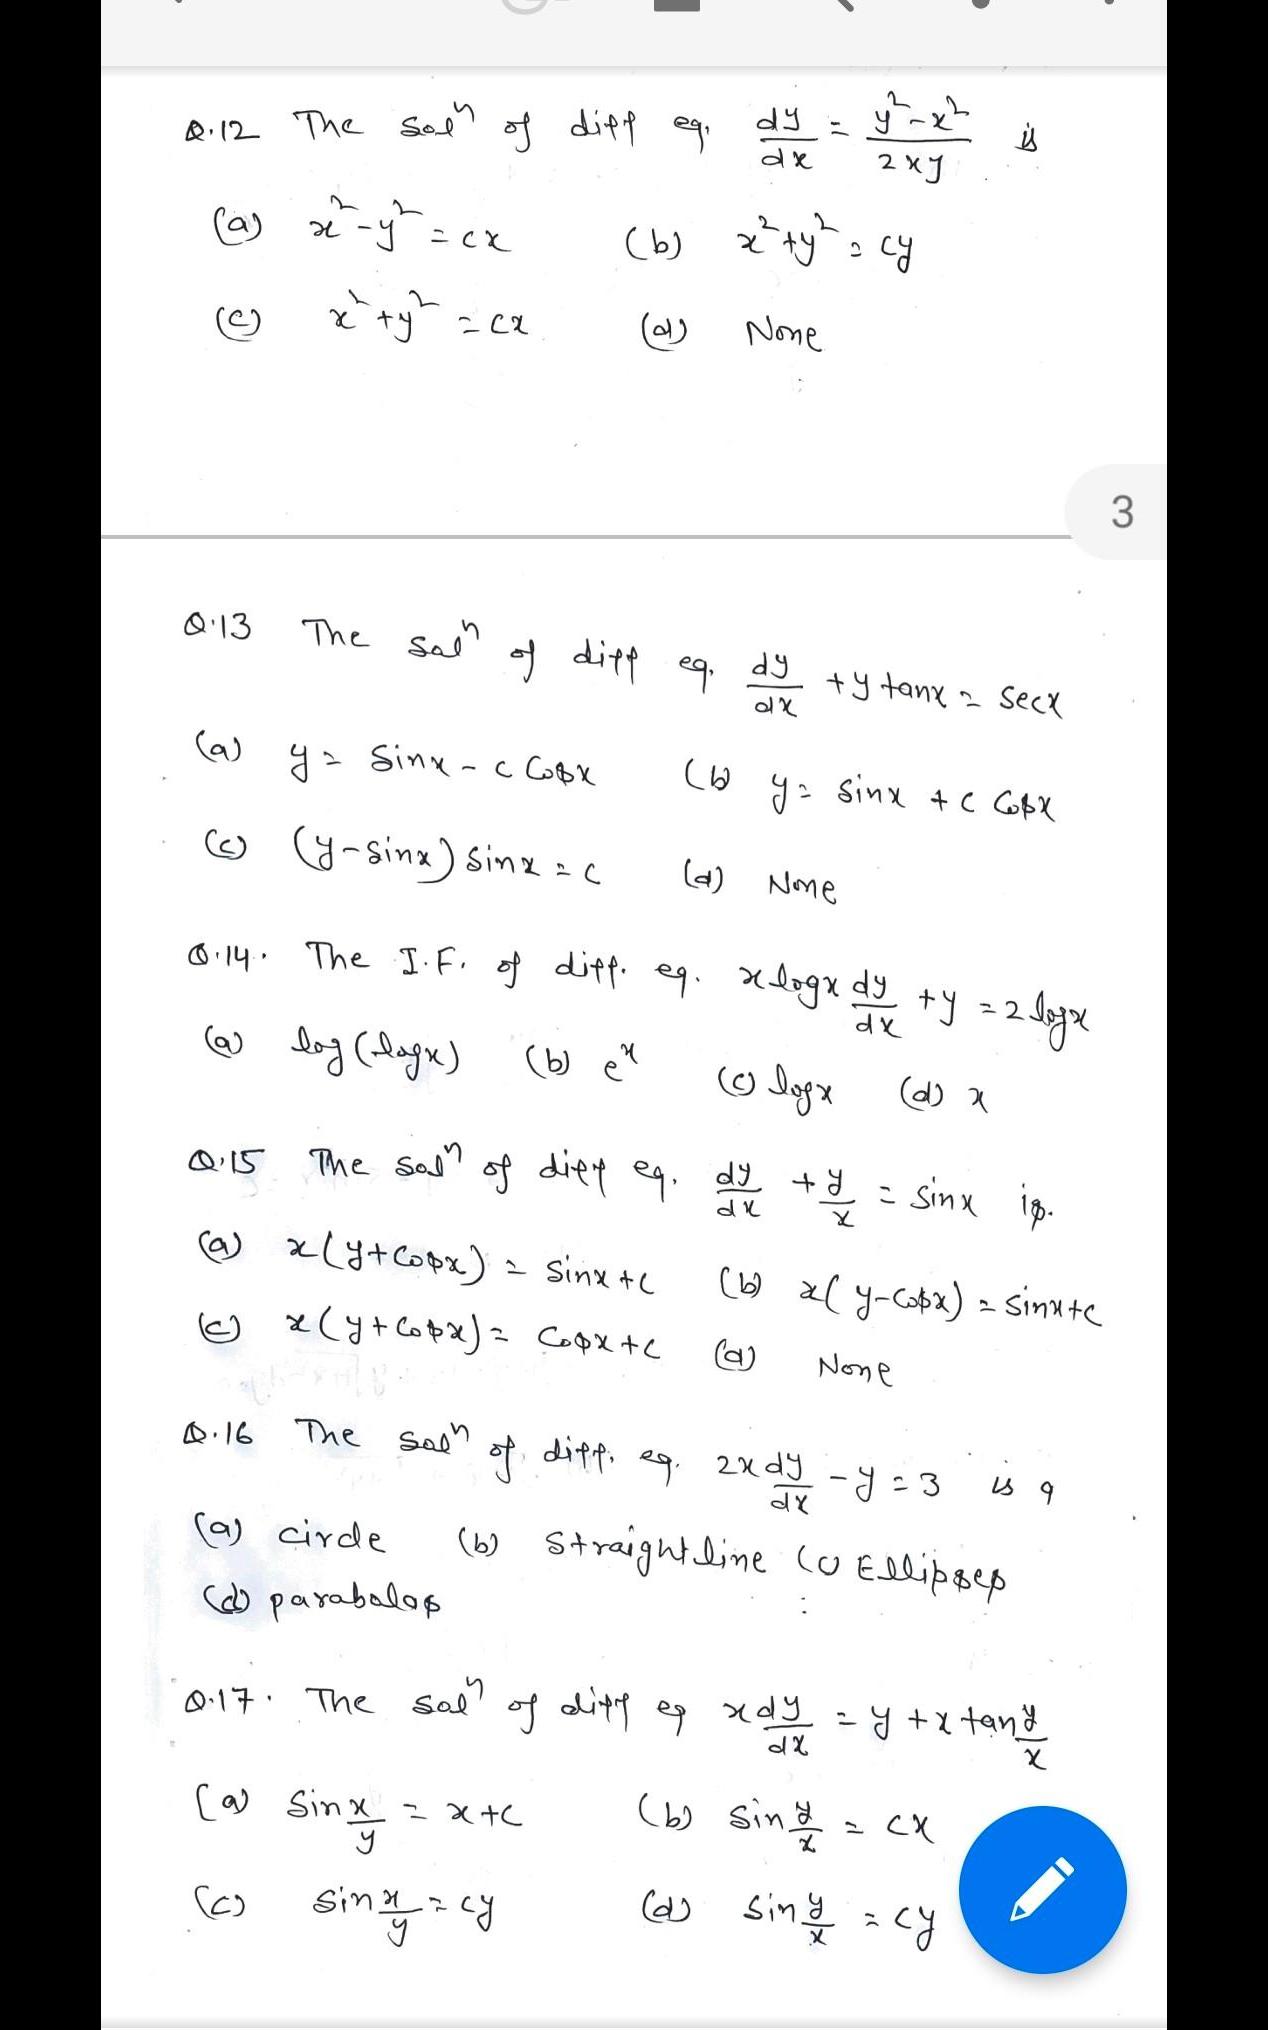 Q.12 The solⁿ of diff eq. dy/dx = y²-x²/2xy is
(a) x²-y² = cx (b) x²+y² = cy
(c) x²+y² = cx (d) None
3
Q.13 The solⁿ of diff eq. dy/dx + y tanx = secx
(a) y = sinx - c cosx (b) y = sinx + c cosx
(c) (y-sinx) sinx = c (d) None
Q.14. The I.F. of diff. eq. x logx dy/dx + y = 2 logx
(a) log(logx) (b) eˣ (c) logx (d) x
Q.15 The solⁿ of diff eq. dy/dx + y/x = sinx is.
(a) x(y+cosx) = sinx+c (b) x(y-cosx) = sinx+c
(c) x(y+cosx) = cosx+c (d) None
Q.16 The solⁿ of diff. eq. 2x dy/dx - y = 3 is a
(a) circle (b) straight line (c) Ellipses
(d) parabolas
Q.17. The solⁿ of diff eq x dy/dx = y + x tan y/x
(a) sin x/y = x+c (b) sin y/x = cx
(c) sin x/y = cy (d) sin y/x = cy